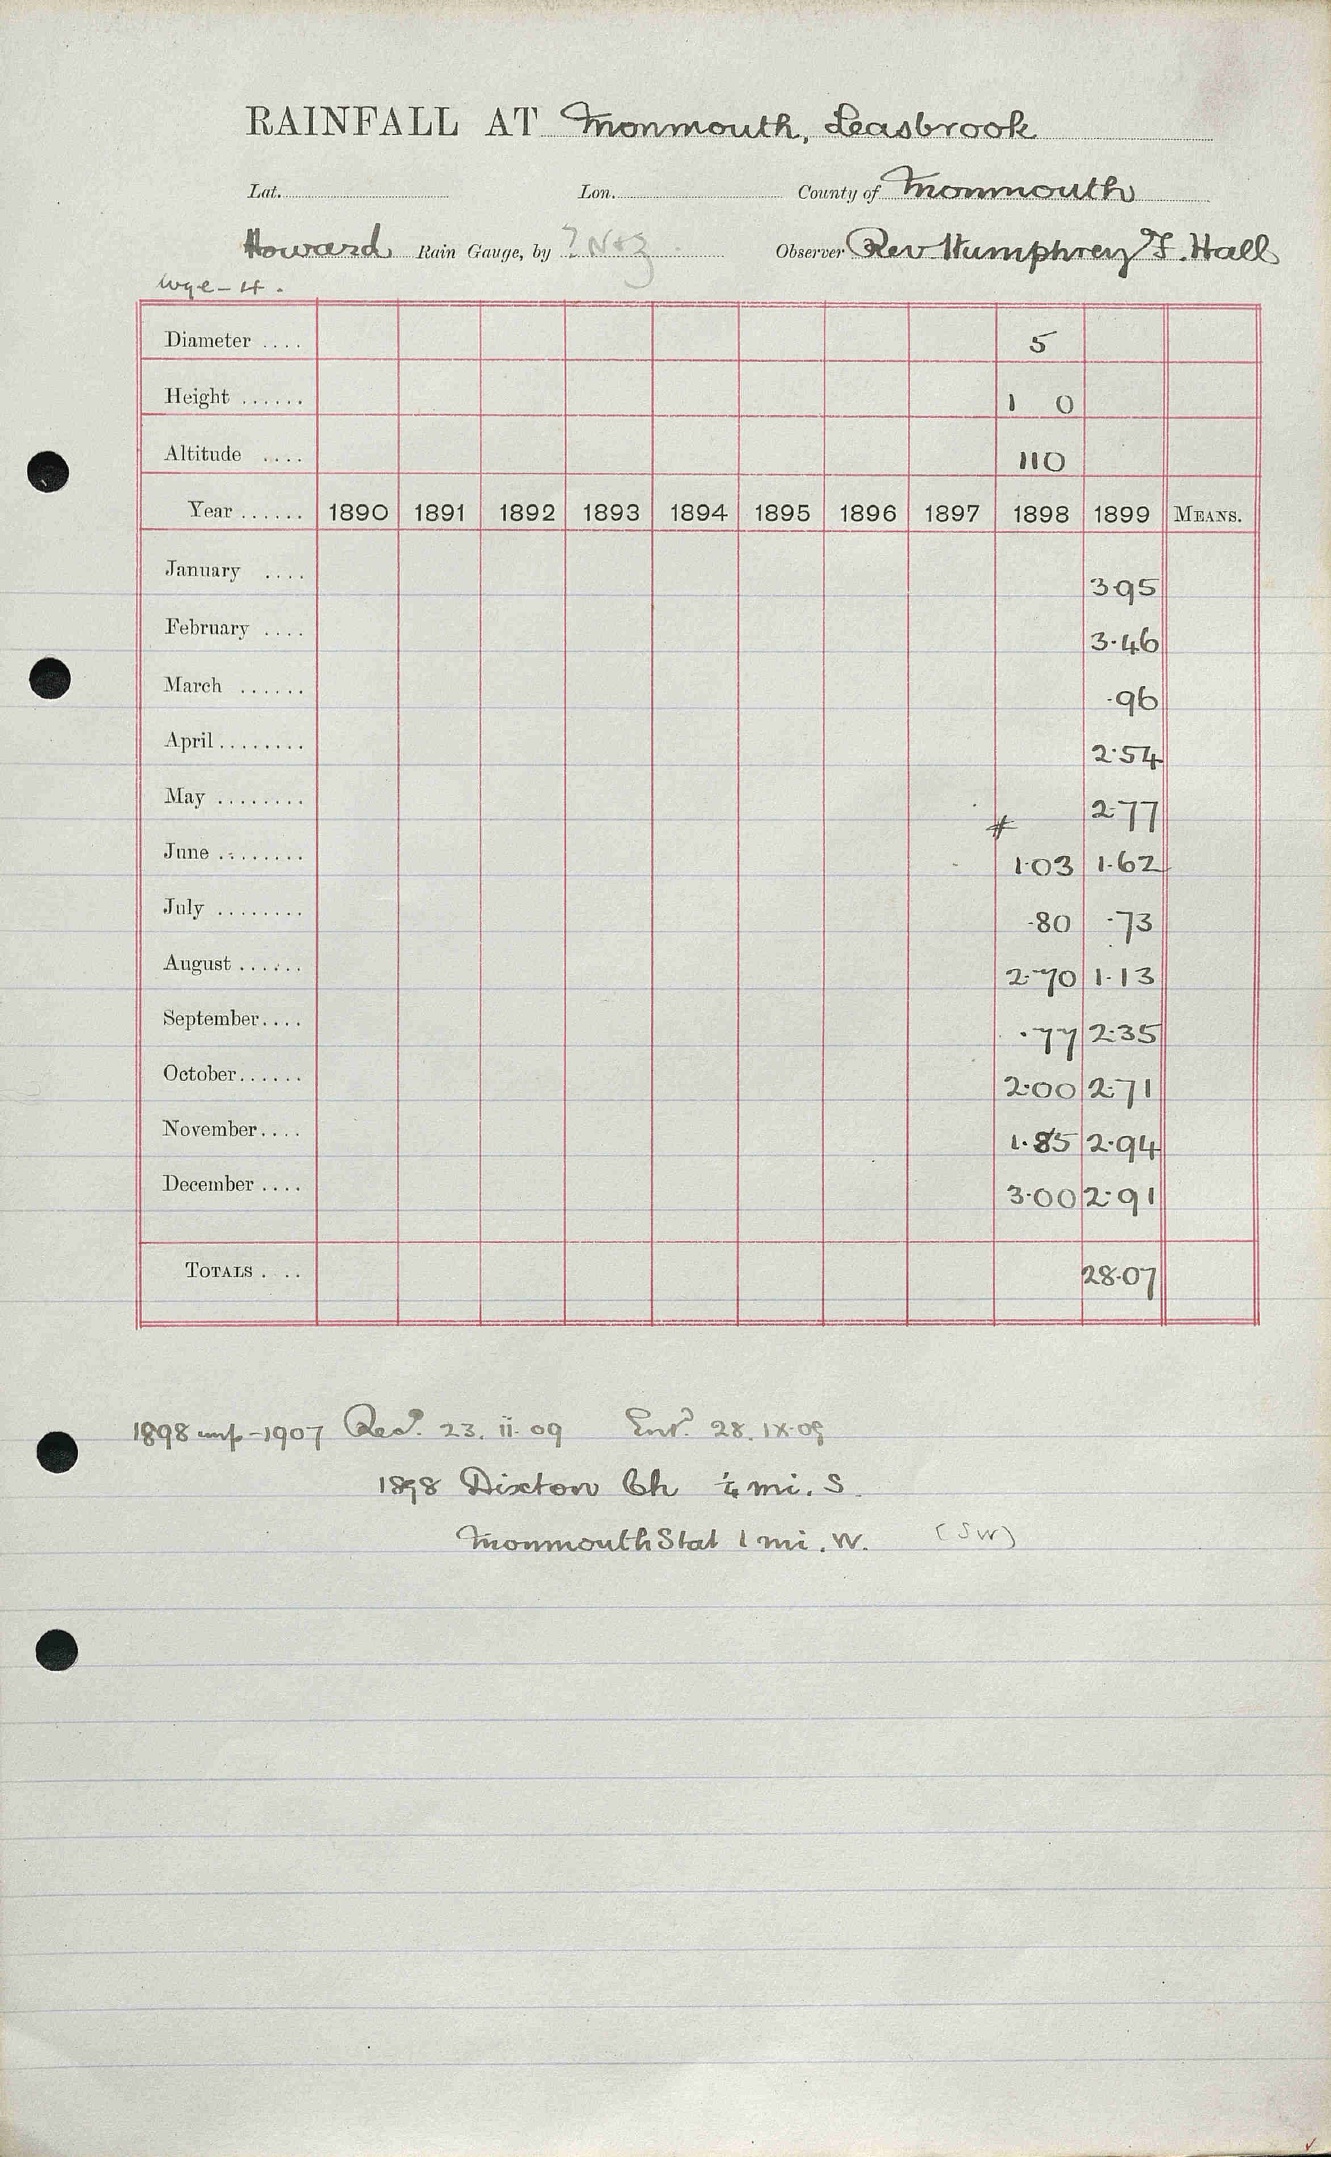 RAINFALL AT Monmouth, Leasbrook
Lat. Lon. County of Monmouth
Howard Rain Gauge, by ? N & Z. Observer Rev Humphrey F. Hall
Diameter .... 5
Height ...... 1 0
Altitude .... 110
Year ...... 1890 1891 1892 1893 1894 1895 1896 1897 1898 1899 MEANS.
January .... 3.95
February .... 3.46
March ...... .96
April ........ 2.54
May ........ 2.77
June ........ # 1.03 1.62
July ........ .80 .73
August ...... 2.70 1.13
September.... .77 2.35
October...... 2.00 2.71
November.... 1.85 2.94
December .... 3.00 2.91
TOTALS . .. 28.07
1898 unp - 1907 Recd. 23. ii. 09 Entd. 28. IX. 09
1898 Dixton Ch ¼ mi. S.
Monmouth Stat 1 mi. W. (SW)